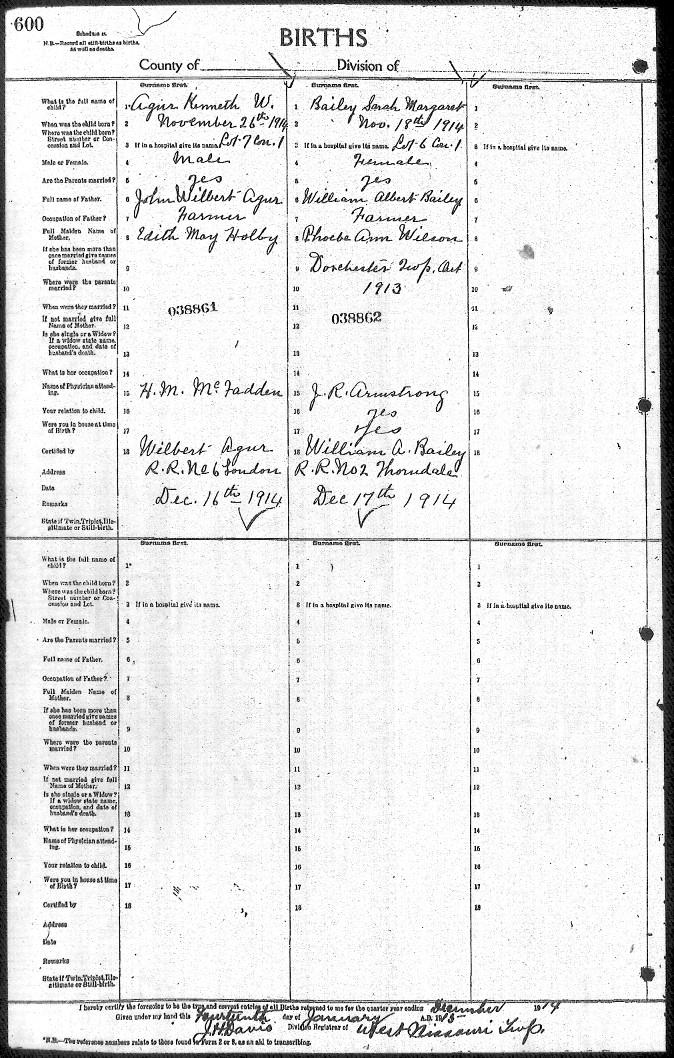 600
Schedule A.
N.B.—Record all still-births as births, as well as deaths.
BIRTHS
County of
Division of
Surname first.
Surname first.
Surname first.
What is the full name of child?
1 Agur Kenneth W.
1 Bailey Sarah Margaret
1
When was the child born?
2 November 26th 1914
2 Nov. 18th 1914
2
Where was the child born? Street number or Concession and Lot.
3 If in a hospital give its name. Lot 7 Con. 1
3 If in a hospital give its name. Lot 6 Con. 1
3 If in a hospital give its name.
Male or Female.
4 Male
4 Female
4
Are the Parents married?
5 yes
5 yes
5
Full name of Father.
6 John Wilbert Agur
6 William Albert Bailey
6
Occupation of Father?
7 Farmer
7 Farmer
7
Full Maiden Name of Mother.
8 Edith May Holby
8 Phoebe Ann Wilson
8
If she has been more than once married give names of former husband or husbands.
9
9 Dorchester Twp. Ont
9
Where were the parents married?
10
10 1913
10
When were they married?
11 038861
11 038862
11
If not married give full Name of Mother.
12
12
12
Is she single or a Widow? If a widow state name, occupation, and date of husband's death.
13
13
13
What is her occupation?
14
14
14
Name of Physician attending.
15 H. M. McFadden
15 J. R. Armstrong
15
Your relation to child.
16
16 yes
16
Were you in house at time of Birth?
17
17 yes
17
Certified by
18 Wilbert Agur
18 William A. Bailey
18
Address
R.R. No 6 London
R.R. No 2 Thorndale
Date
Dec. 16th 1914
Dec 17th 1914
Remarks
State if Twin, Triplet, Illegitimate or Still-birth.
Surname first.
Surname first.
Surname first.
What is the full name of child?
1
1
1
When was the child born?
2
2
2
Where was the child born? Street number or Concession and Lot.
3 If in a hospital give its name.
3 If in a hospital give its name.
3 If in a hospital give its name.
Male or Female.
4
4
4
Are the Parents married?
5
5
5
Full name of Father.
6
6
6
Occupation of Father?
7
7
7
Full Maiden Name of Mother.
8
8
8
If she has been more than once married give names of former husband or husbands.
9
9
9
Where were the parents married?
10
10
10
When were they married?
11
11
11
If not married give full Name of Mother.
12
12
12
Is she single or a Widow? If a widow state name, occupation, and date of husband's death.
13
13
13
What is her occupation?
14
14
14
Name of Physician attending.
15
15
15
Your relation to child.
16
16
16
Were you in house at time of Birth?
17
17
17
Certified by
18
18
18
Address
Date
Remarks
State if Twin, Triplet, Illegitimate or Still-birth.
I hereby certify the foregoing to be the true and correct entries of all Births returned to me for the quarter year ending December 1914
Given under my hand this Fourteenth day of January A.D. 1915
J. H. Davis Division Registrar of West Nissouri Twp.
*N.B.—The reference numbers relate to those found in Form 2 or 8, as an aid to transcribing.